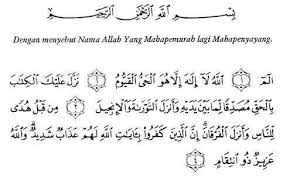 بِسْمِ اللَّهِ الرَّحْمَٰنِ الرَّحِيمِ
Dengan menyebut Nama Allah Yang Mahapemurah lagi Mahapenyayang.
الٓمٓ ١ اللَّهُ لَا إِلَٰهَ إِلَّا هُوَ الْحَيُّ الْقَيُّومُ ٢ نَزَّلَ عَلَيْكَ الْكِتَابَ
بِالْحَقِّ مُصَدِّقًا لِمَا بَيْنَ يَدَيْهِ وَأَنْزَلَ التَّوْرَاةَ وَالْإِنْجِيلَ ٣ مِنْ قَبْلُ هُدًى
لِلنَّاسِ وَأَنْزَلَ الْفُرْقَانَ إِنَّ الَّذِينَ كَفَرُوا بِآيَاتِ اللَّهِ لَهُمْ عَذَابٌ شَدِيدٌ وَاللَّهُ
عَزِيزٌ ذُو انْتِقَامٍ ٤